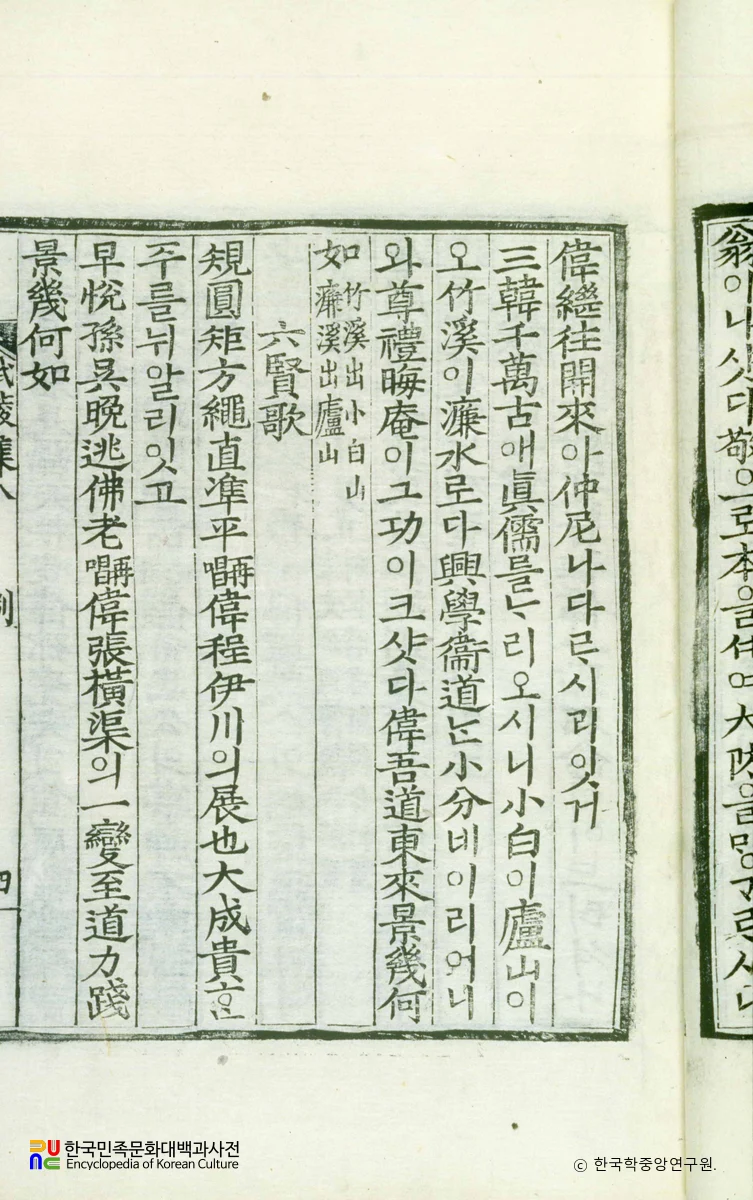 翁이나샷다敬으로本을셰여大防을
偉繼往開來아仲尼나다ᄅᆞ시리잇거
三韓千萬古애眞儒를ᄂᆞ리오시니小白이廬山이
오竹溪이濂水로다興學衛道ᄂᆞᆫ小分네이리어니
와尊禮晦庵이그功이크샷다偉吾道東來景幾何
如竹溪出小白山
濂溪出廬山
六賢歌
規圓矩方繩直準平再唱偉程伊川의展也大成貴ᄒᆞᆫ
주를뉘알리잇고
早悅孫吳晩逃佛老再唱偉張橫渠의一變至道力踐
景幾何如
武陵集八
別
四
한국민족문화대백과사전
Encyclopedia of Korean Culture
© 한국학중앙연구원.